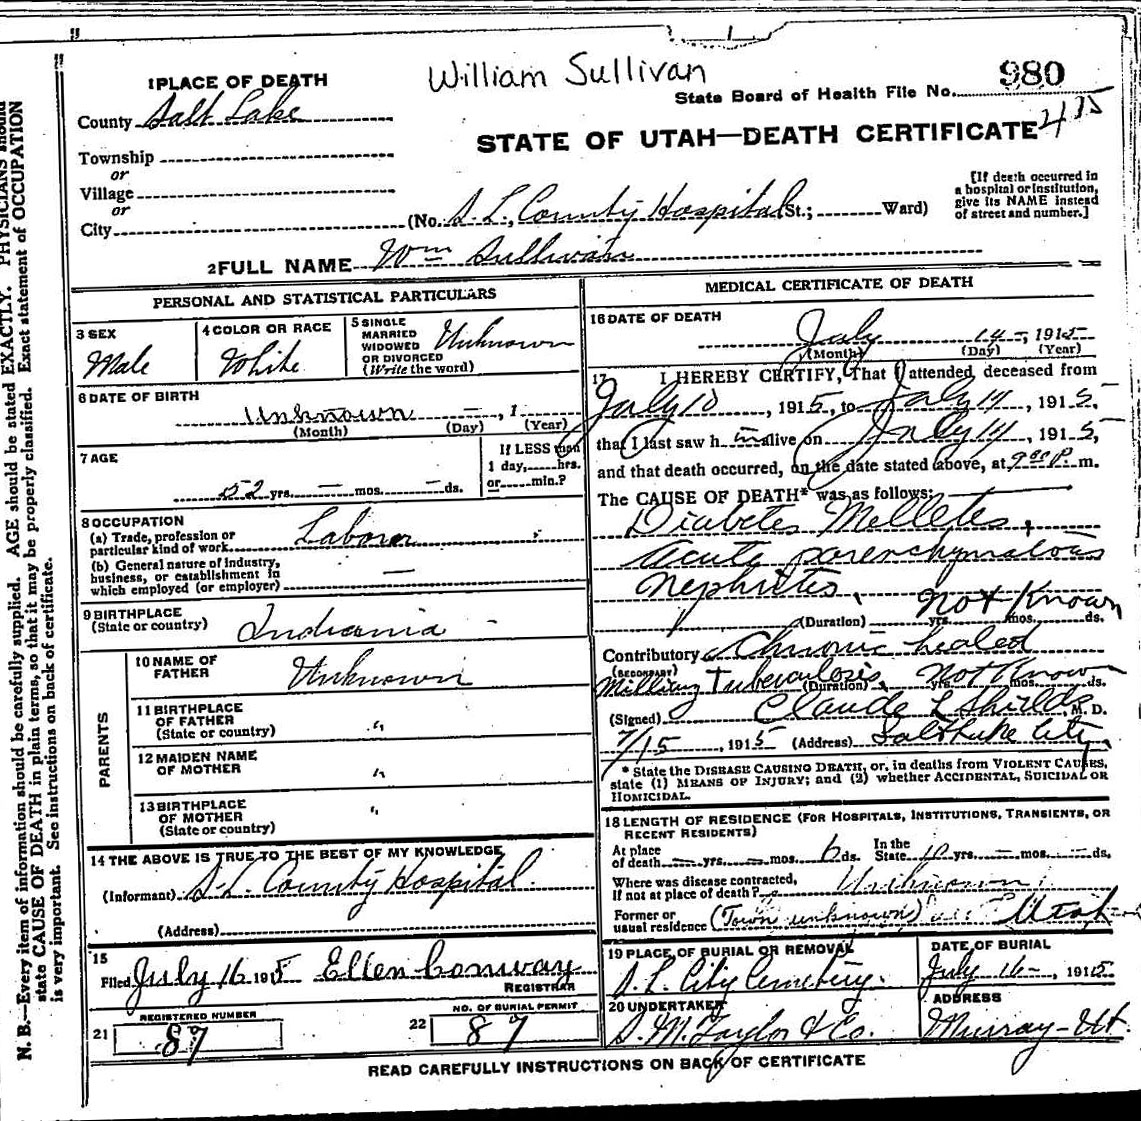 William Sullivan
980
State Board of Health File No.
475
1 PLACE OF DEATH
County Salt Lake
Township
or
Village
or
City
STATE OF UTAH—DEATH CERTIFICATE
(No. S. L. County Hospital St.; Ward)
[If death occurred in
a hospital or institution,
give its NAME instead
of street and number.]
2 FULL NAME Wm Sullivan
PERSONAL AND STATISTICAL PARTICULARS
3 SEX
Male
4 COLOR OR RACE
White
5 SINGLE
MARRIED
WIDOWED
OR DIVORCED
(Write the word)
Unknown
6 DATE OF BIRTH
Unknown — , 1
(Month) (Day) (Year)
7 AGE
52 yrs. — mos. — ds.
If LESS than
1 day, hrs.
or min.?
8 OCCUPATION
(a) Trade, profession or
particular kind of work Laborer
(b) General nature of industry,
business, or establishment in
which employed (or employer) —
9 BIRTHPLACE
(State or country) Indiania -
PARENTS
10 NAME OF
FATHER Unknown
11 BIRTHPLACE
OF FATHER
(State or country) "
12 MAIDEN NAME
OF MOTHER "
13 BIRTHPLACE
OF MOTHER
(State or country) "
14 THE ABOVE IS TRUE TO THE BEST OF MY KNOWLEDGE
(Informant) S. L. County Hospital
(Address)
15
Filed July 16 1915 Ellen Conway
REGISTRAR
REGISTERED NUMBER
21 87
NO. OF BURIAL PERMIT
22 87
MEDICAL CERTIFICATE OF DEATH
16 DATE OF DEATH
July 14 -, 1915
(Month) (Day) (Year)
17 I HEREBY CERTIFY, That I attended deceased from
July 10, 1915, to July 14, 1915,
that I last saw h im alive on July 14, 1915,
and that death occurred, on the date stated above, at 9 P. m.
The CAUSE OF DEATH* was as follows:
Diabetes Melletes,
acute parenchymatous
nephrites,
Not Known
(Duration) yrs. mos. ds.
Contributory Chronic healed
(SECONDARY)
Milliary Tuberculosis, Not Known
(Duration) yrs. mos. ds.
(Signed) Claude L Shields M. D.
7/15, 1915 (Address) Salt Lake City,
* State the DISEASE CAUSING DEATH, or, in deaths from VIOLENT CAUSES,
state (1) MEANS OF INJURY; and (2) whether ACCIDENTAL, SUICIDAL OR
HOMICIDAL.
18 LENGTH OF RESIDENCE (FOR HOSPITALS, INSTITUTIONS, TRANSIENTS, OR
RECENT RESIDENTS)
At place
of death — yrs. — mos. 6 ds.
In the
State 10 yrs. — mos. — ds.
Where was disease contracted,
if not at place of death? Unknown
Former or
usual residence (Town unknown) Utah
19 PLACE OF BURIAL OR REMOVAL
S. L. City Cemetery.
DATE OF BURIAL
July 16-, 1915
20 UNDERTAKER
S. M. Taylor & Co.
ADDRESS
Murray-Ut.
READ CAREFULLY INSTRUCTIONS ON BACK OF CERTIFICATE
N. B.—Every item of information should be carefully supplied. AGE should be stated EXACTLY. PHYSICIANS should
state CAUSE OF DEATH in plain terms, so that it may be properly classified. Exact statement of OCCUPATION
is very important. See instructions on back of certificate.